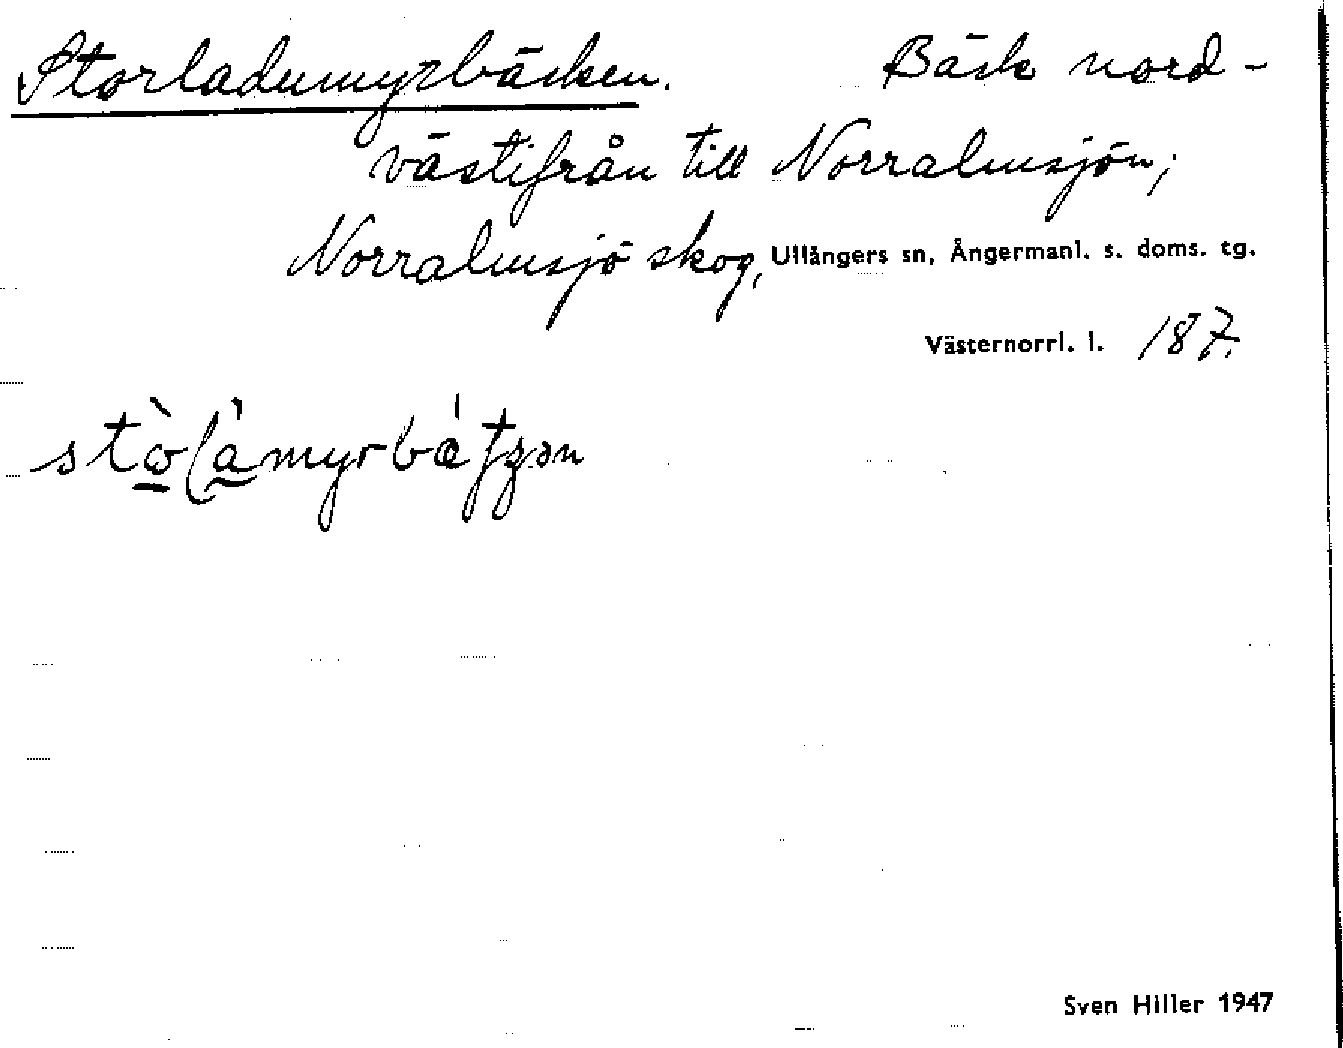 Storladumyrbäcken. Bäck nord-
västifrån till Norralmsjön,
Norralmsjö skog, Ullångers sn, Ångermanl. s. doms. tg.
Västernorrl. l. 187.
Sven Hiller 1947